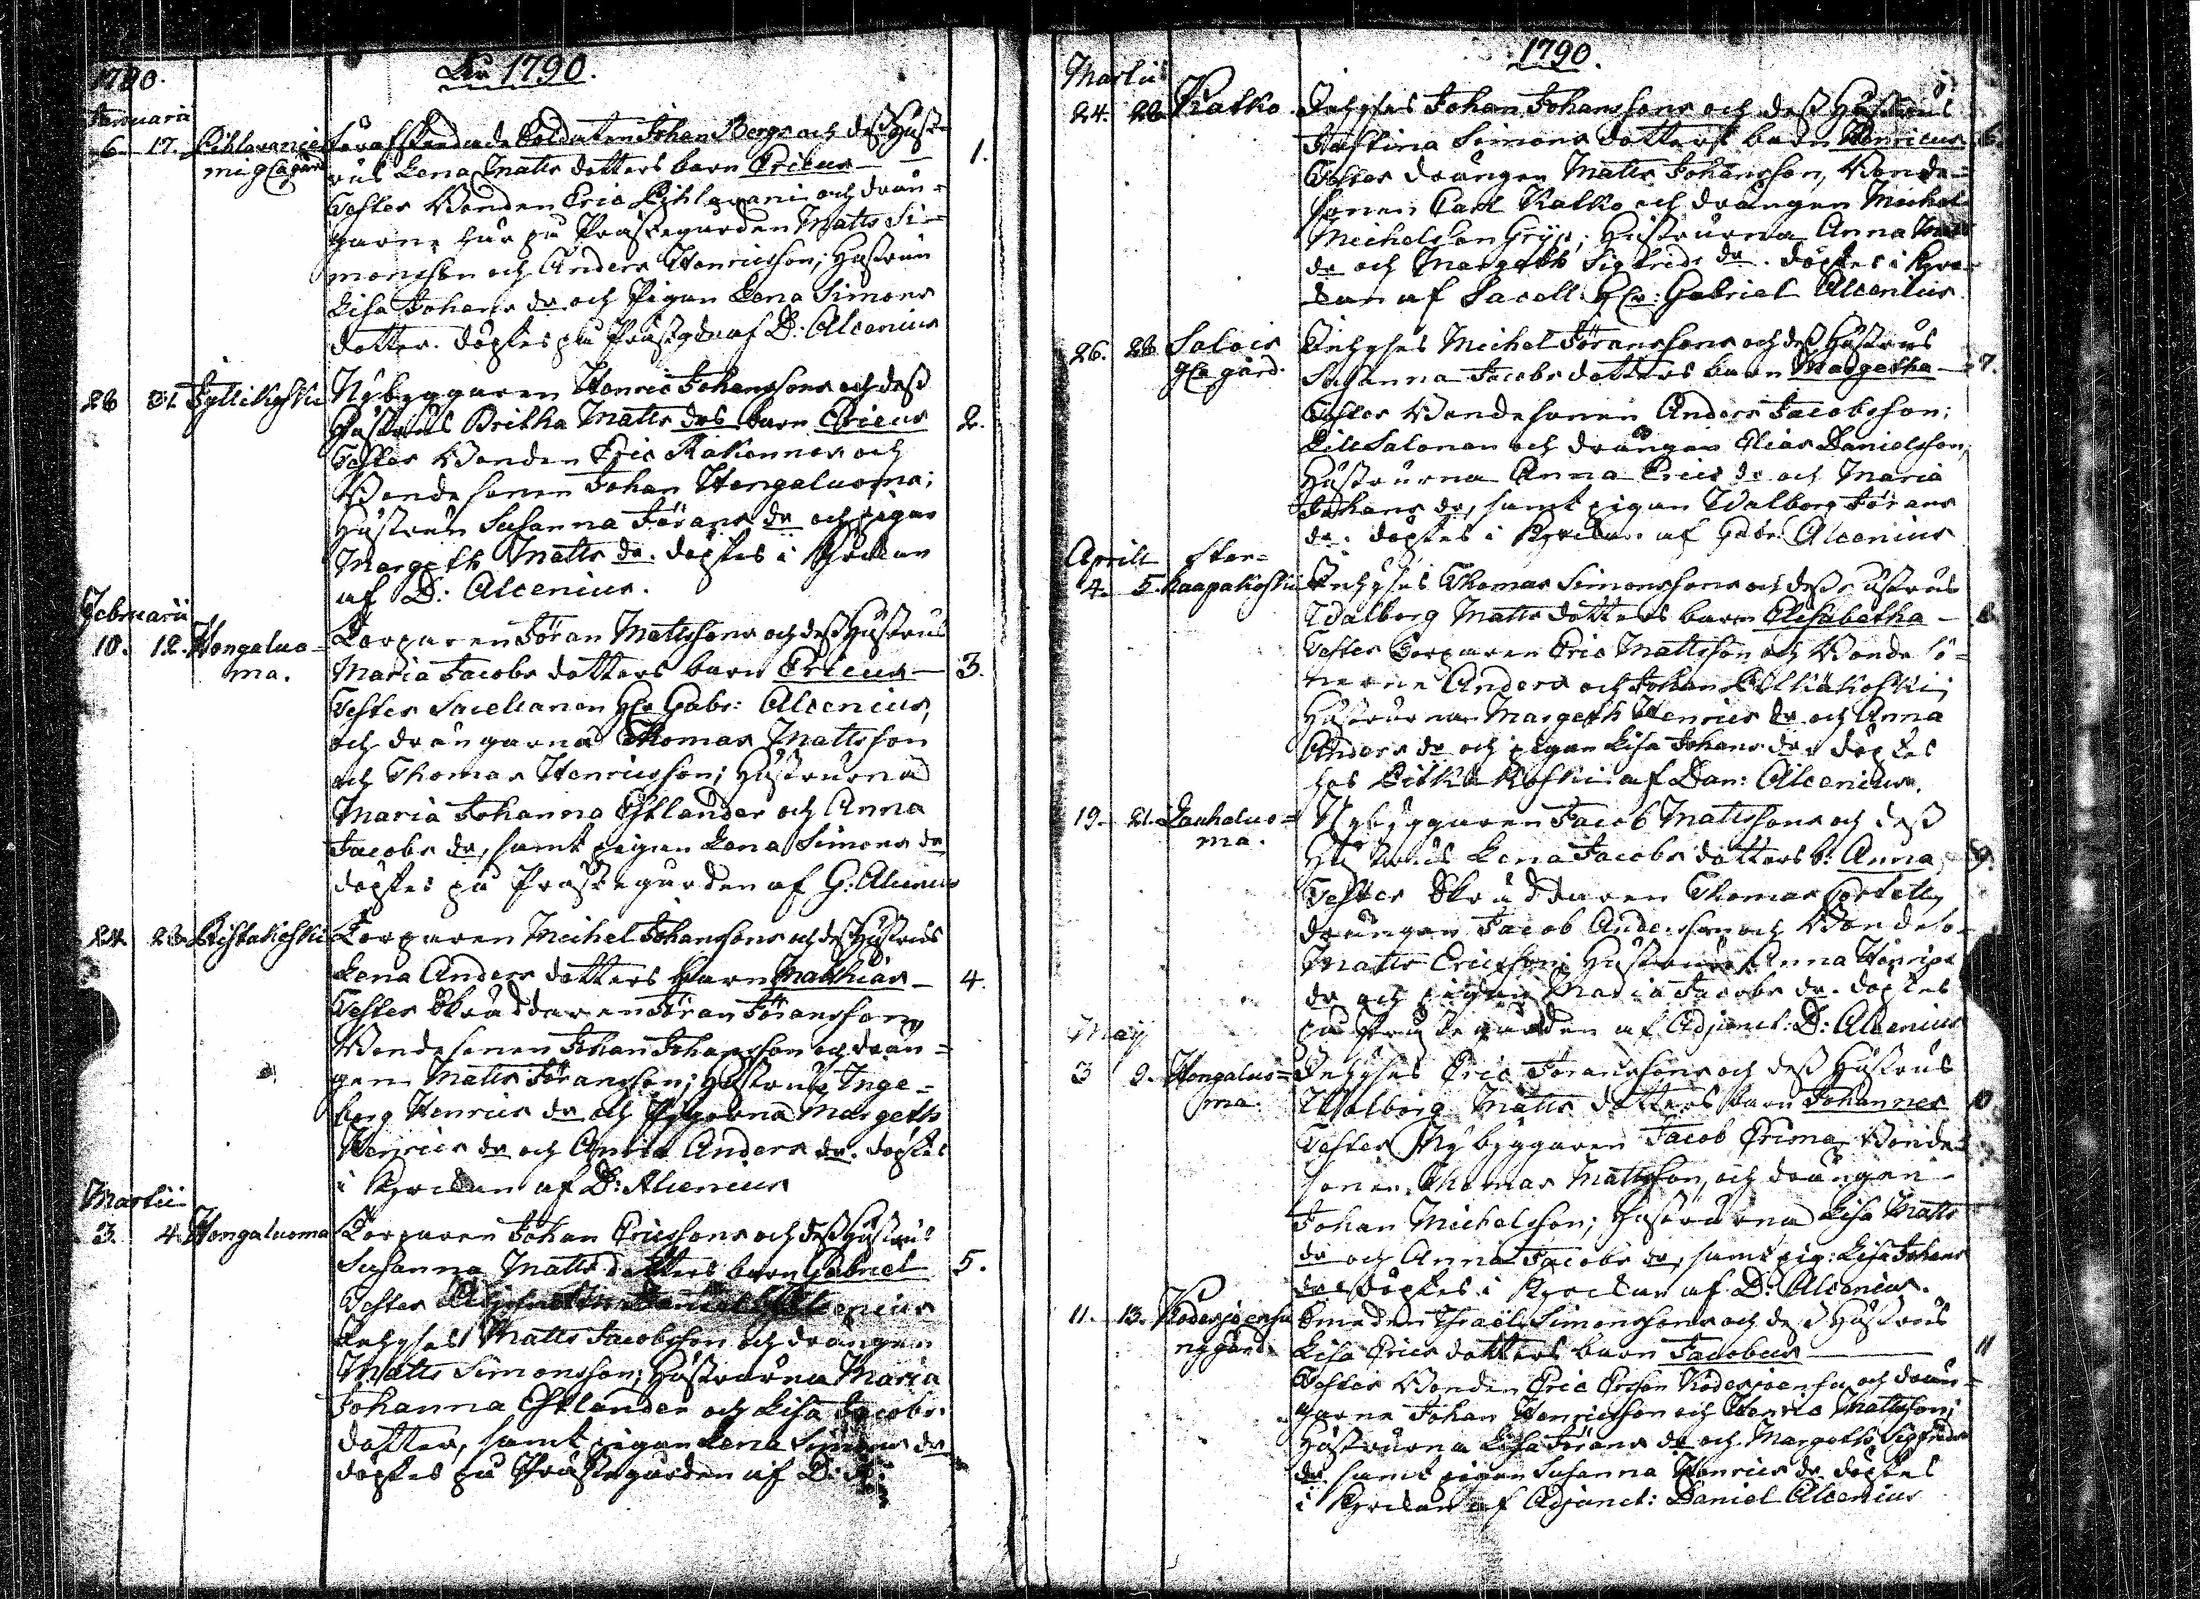 1790.
År 1790.
Januarii
6. 17. Pihlavanie
mi gla gård
Förafskedade Soldaten Johan Bergs och dess Hust-
rus Lena Matts dotters barn Ericus — 1.
Testes Bonden Eric Pihlavani och drän-
garne här på Prästegården Matts Si-
monsson och Anders Henricsson; Hustrun
Lisa Johans dr och Pigan Lena Simons
dotter. döptes på Prästgdn af D: Alcenius
28 31. Jyllikoski
Nybyggaren Henric Johanssons och dess
Hustrus Britha Matts drs barn Ericus 2.
Testes Bonden Eric Kakonnes och
Bonde sonen Johan Hongaluoma;
Hustrun Susanna Jörans dr och pigan
Margeth Matts dr. döptes i Kyrckan
af D: Alcenius.
Februarii
10. 12. Hongaluo-
ma.
Torparen Jöran Mattssons och dess Hustrus
Maria Jacobs dotters barn Ericus — 3.
Testes Sacellanen Hr Gabr: Alcenius,
och drängarna Thomas Mattsson
och Thomas Henricsson; Hustrurna
Maria Johanna Estlander och Anna
Jacobs dr, samt pigan Lena Simons dr
döptes på Prästegården af G: Alcenius
24. 28. Ristakoski
Torparen Michel Johanssons och dess Hustrus
Lena Anders dotters barn Matthias — 4.
Testes Skräddaren Jöran Jöransson
Bonde sonen Johan Johansson och drän-
gen Matts Jöransson; Hustrun Inge-
borg Henrics dr och Pigorna Margeth
Henrics dr och Anna Anders dr. döptes
i Kyrckan af D: Alcenius
Martii
3. 4. Hongaluoma
Torparen Johan Ericssons och dess Hustrus
Susanna Matts dotters barn Gabriel 5.
Testes Alcenius
Inhyses Matts Jacobsson och drängen
Matts Simonsson; Hustrurna Maria
Johanna Estlander och Lisa Jacobs
dotter, samt pigan Lena Simons dr
döptes på Prästegården af D: A:
1790.
Martii
24. 28. Ratko
Inhyses Johan Johanssons och dess Hustrus
Justina Simons dotters barn Henricus 6.
Testes drängen Matts Johansson, Bonde-
sonen Carl Ratko och drängen Michel
Michelsson Gryp; Hustrurna Anna Matts
dr och Margeth Sigfrids dr. döptes i Kyrc-
kan af Sacell: Hr: Gabriel Alcenius.
26. 28. Salois
gla gård.
Inhyses Michel Jöranssons och dess Hustrus
Susanna Jacobs dotters barn Margetha — 7.
Testes Bondesonen Anders Jacobsson;
Lill Salonen och drängen Elias Danielsson,
Hustrurna Anna Erics dr och Maria
Johans dr, samt pigan Walborg Jörans
dr. döptes i Kyrckan af Gabr: Alcenius
Aprill
4. 5. Stor-
kaapakoski
Inhyses Thomas Simonssons och dess Hustrus
Walborg Matts dotters barn Elisabetha — 8.
Testes Torparen Eric Mattsson och Bonde sö-
nerne Anders och Johan Pitkäkoski;
Hustrurna Margeth Henrics dr och Anna
Anders dr och pigan Lisa Johans dr. döptes
hos Pitkäkoski af Dan: Alcenius.
19. 21. Lauhaluo-
ma.
Nybyggaren Jacob Mattssons och dess
Hustrus Lena Jacobs dotters b: Anna 9.
Testes Skräddaren Thomas
drängen Jacob Andersson och Bondeso-
Matts Ericsson; Hustrun Anna Henrics
dr och pigan Maria Jacobs dr. döptes
på Prästegården af Adjunct: D: Alcenius
Maij
3 9. Hongaluo-
ma.
Inhyses Eric Jöranssons och dess Hustrus
Walborg Matts dotters barn Johannes 10
Testes Nybyggaren Jacob Prima Bonde-
sonen Thomas Mattsson, och drängen
Johan Michelsson; Hustrurna Lisa Matts
dr och Anna Jacobs dr, samt pig: Lisa Johans
dr döptes i Kyrckan af D: Alcenius.
11. 13. Koderjoensu
ng gård.
Smeden Israël Simonssons och dess Hustrus
Lisa Erics dotters barn Jacobus — 11
Testes Bonden Eric Ersson Koderjoensu och drän-
garne Johan Henricsson och Henric Mattsson;
Hustrurna Lisa Jörans dr och Margeth Sigfrids
dr samt pigan Susanna Henrics dr döptes
i Kyrckan af Adjunct: Daniel Alcenius